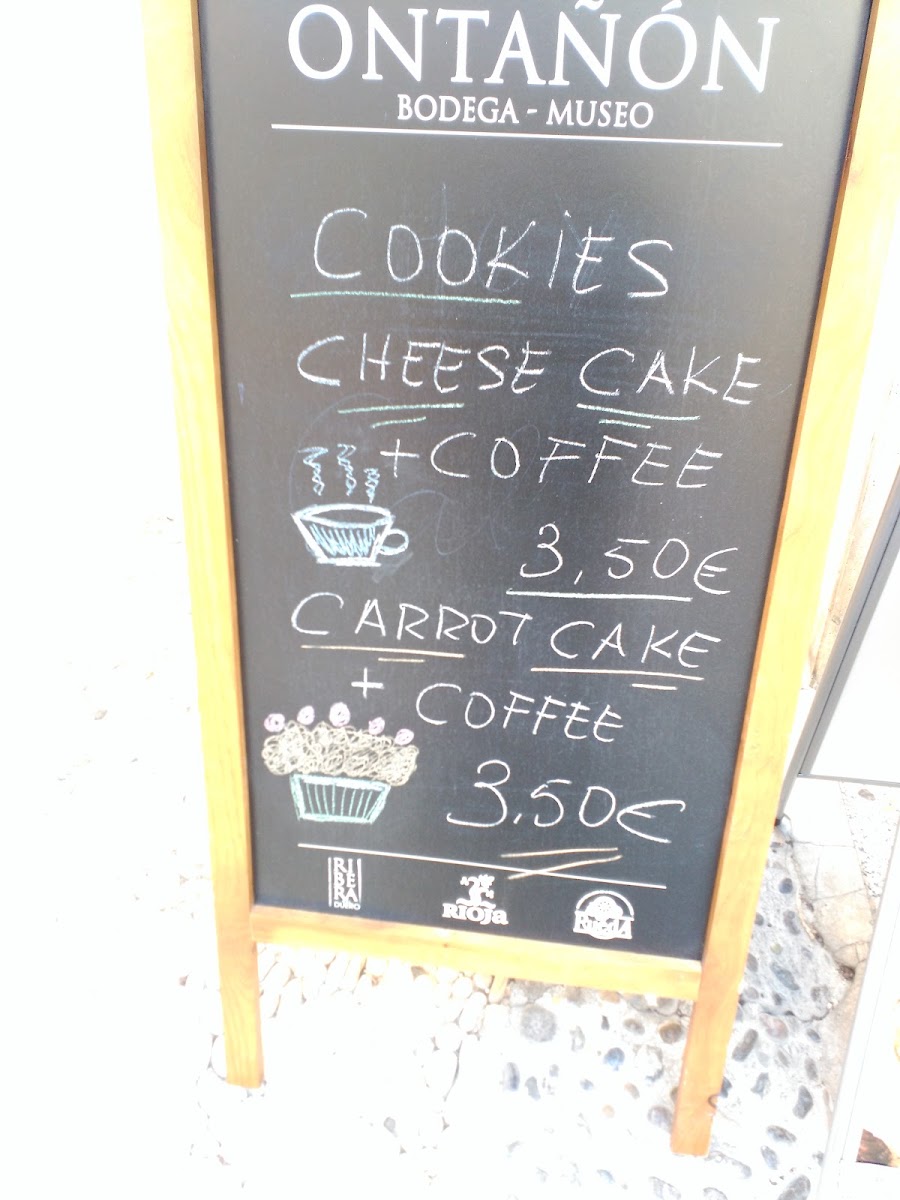 ONTAÑÓN
BODEGA - MUSEO
COOKIES
CHEESE CAKE
+ COFFEE
3,50€
CARROT CAKE
+ COFFEE
3,50€
RIBERA
DUERO
RIOJA
RUEDA